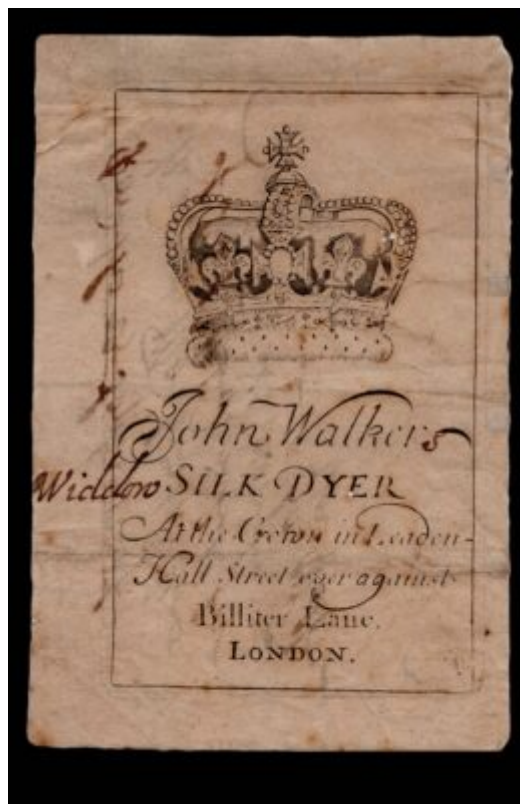 John Walkers
Widdow SILK DYER
At the Crown in Leaden-
Hall Street over against
Billiter Lane.
LONDON.